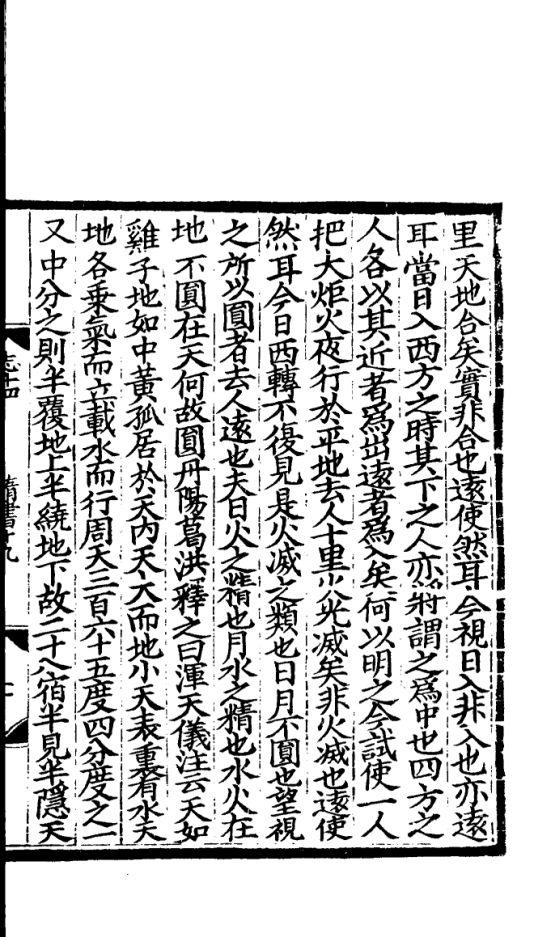 里天地合矣實非合也遠使然耳今視日入非入也亦遠
耳當日入西方之時其下之人亦將謂之爲中也四方之
人各以其近者爲出遠者爲入矣何以明之今試使一人
把大炬火夜行於平地去人十里火光滅矣非火滅也遠使
然耳今日西轉不復見是火滅之類也日月不圓也望視
之所以圓者去人遠也夫日火之精也月水之精也水火在
地不圓在天何故圓丹陽葛洪釋之曰渾天儀注云天如
雞子地如中黃孤居於天內天大而地小天表裏有水天
地各乘氣而立載水而行周天三百六十五度四分度之一
又中分之則半覆地上半繞地下故二十八宿半見半隱天
志十四
隋書十九